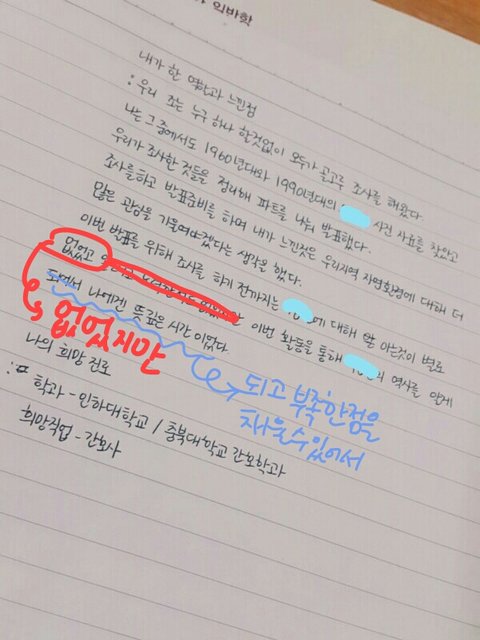 내가 한 역할과 느낀점
: 우리 조는 누구 하나 할것없이 모두가 골고루 조사를 해왔다.
나는 그중에서도 1960년대와 1990년대의 사건 자료를 찾았고
우리가 조사한 것들을 정리해 파트를 나눠 발표했다.
조사를하고 발표준비를 하며 내가 느낀것은 우리지역 자연환경에 대해 더
많은 관심을 기울여야겠다는 생각을 했다.
이번 발표를 위해 조사를 하기 전까지는 에 대해 아는것이 별로
없었고 이번 활동을 통해 의 역사를 알게
되면서 나에겐 뜻깊은 시간이었다.
없었지만
되고 부족한점을
채울수있어서
나의 희망 진로
: 학과 - 인하대학교 / 충북대학교 간호학과
희망직업 - 간호사